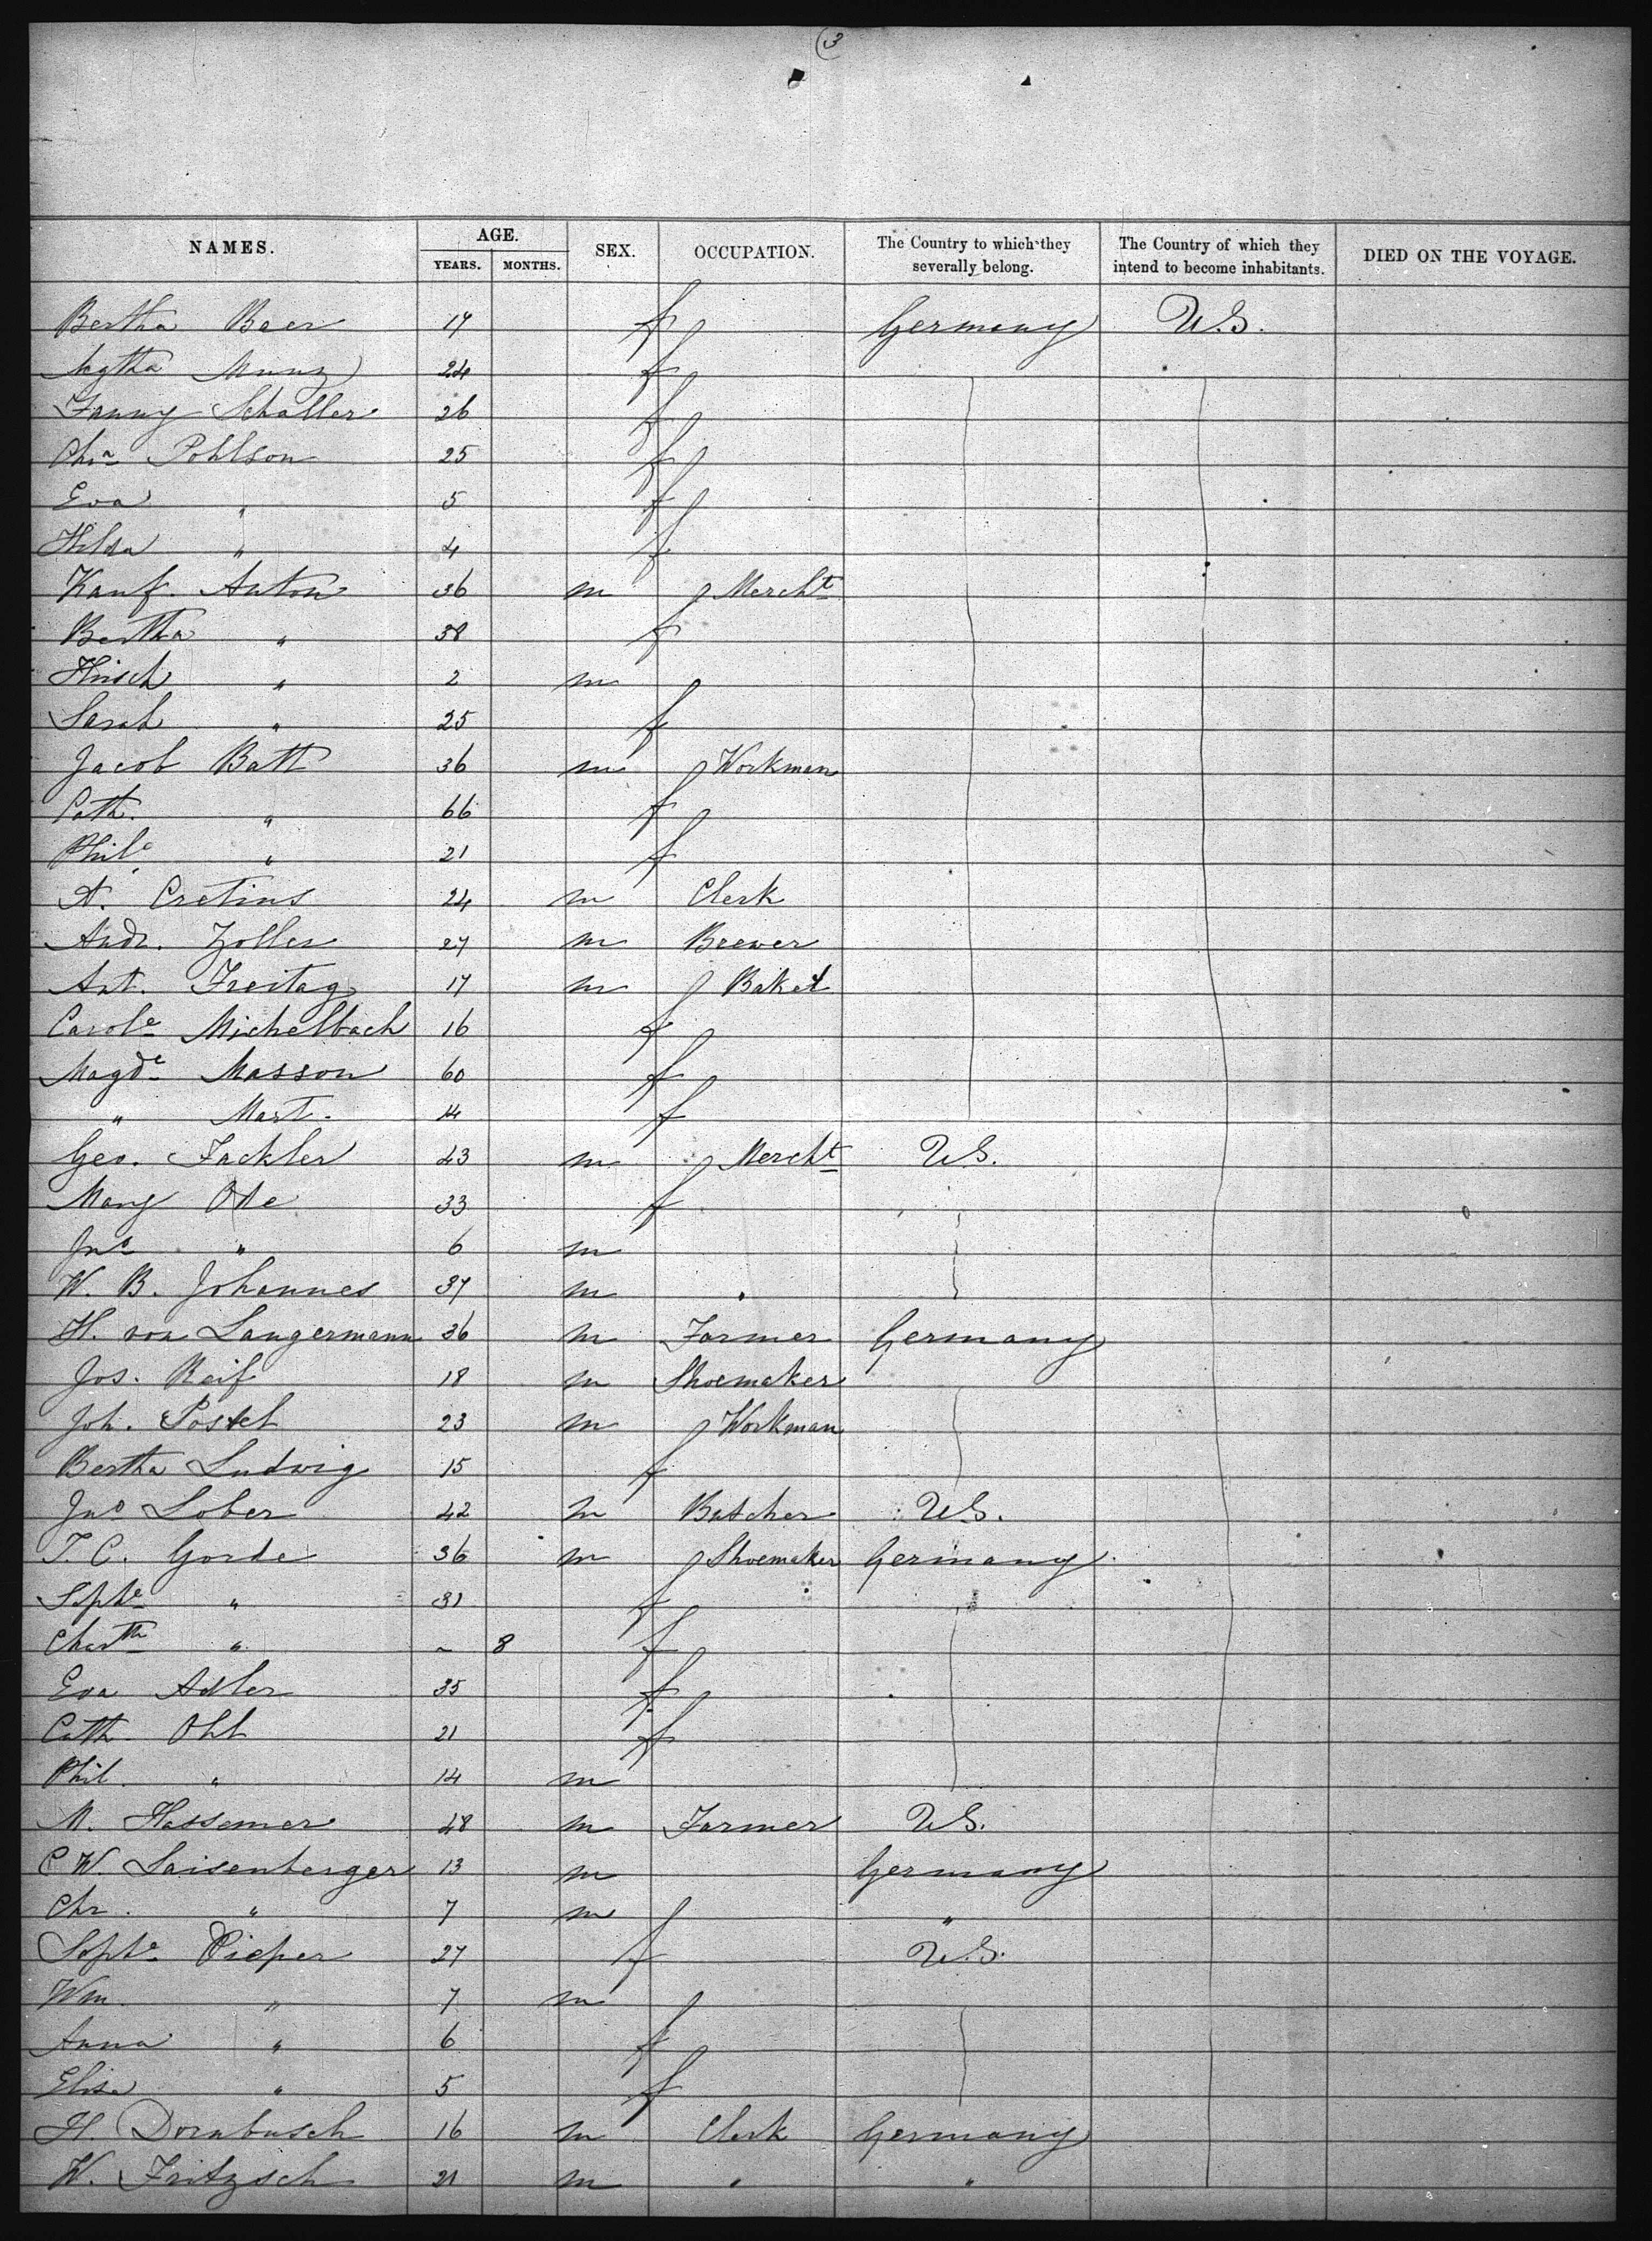 3
NAMES. AGE. YEARS. MONTHS. SEX. OCCUPATION. The Country to which they severally belong. The Country of which they intend to become inhabitants. DIED ON THE VOYAGE.
Bertha Baer 17 f Germany U.S.
Agtha Munz 24 f
Fanny Schaller 26 f
Chra Pohlson 25 f
Eva " 5 f
Hilda " 4 f
Kauf. Anton 36 m Mercht
Bertha " 38 f
Hirsch " 2 m
Sarah " 25 f
Jacob Batt 36 m Workman
Cath. " 66 f
Phile " 21 f
A. Cretins 24 m Clerk
Andr. Zoller 27 m Brewer
Ant. Freitag 17 m Baker
Carole Michelbach 16 f
Magde Masson 60 f
" Mart. 14 f
Geo. Fackler 43 m Mercht U.S.
Mary Ode 33 f
Jno " 6 m
W. B. Johannes 37 m "
H. von Langermann 36 m Farmer Germany
Jos. Reif 18 m Shoemaker
Joh. Postel 23 m Workman
Bertha Ludwig 15 f
Jno Lober 42 m Butcher U.S.
T. C. Gorde 36 m Shoemaker Germany
Sophe " 31 f
Chartte " ~ 8 f
Eva Adler 35 f
Cath. Ohl 21 f
Phil. " 14 m
M. Hassemer 48 m Farmer U.S.
C W. Laisenberger 13 m Germany
Chr. " 7 m "
Sophe Pieper 27 f U.S.
Wm. " 7 m
Anna " 6 f
Elise " 5 f
H. Dornbusch 16 m Clerk Germany
W. Fritzsch 21 m " "